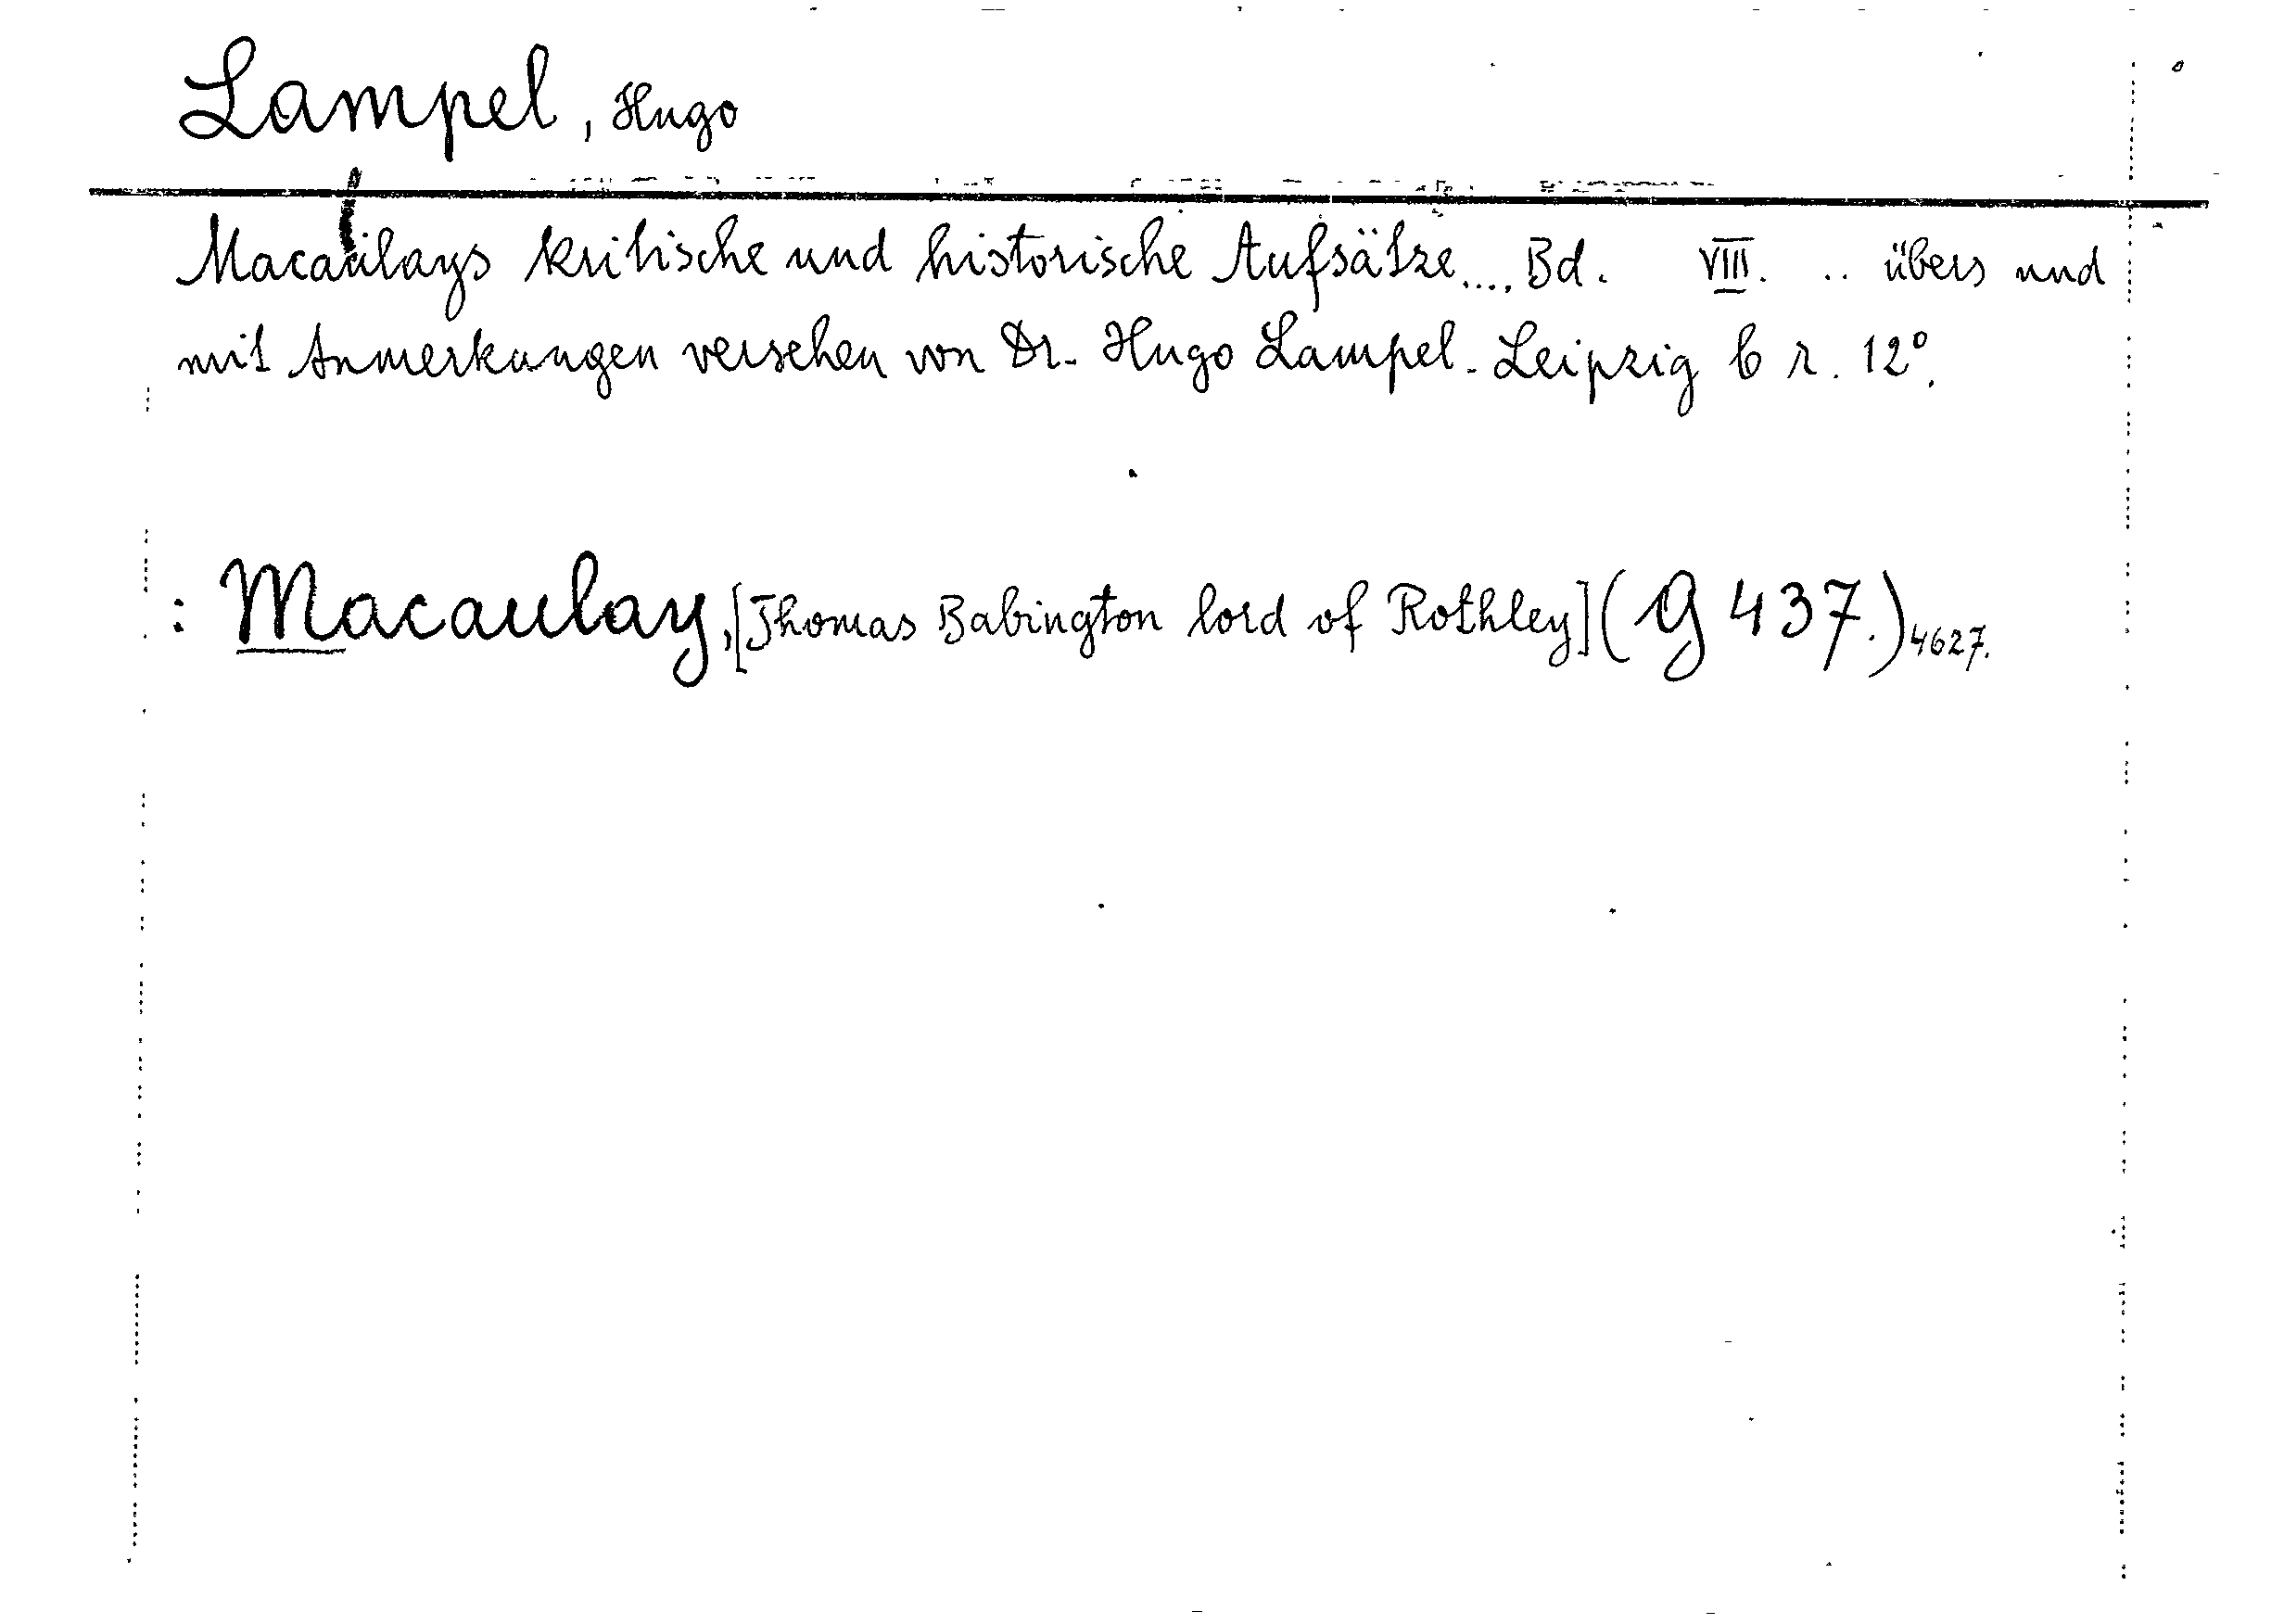 Lampel, Hugo
Macaulays kritische und historische Aufsätze.... Bd. VIII. .. übers und
mit Anmerkungen versehen von Dr. Hugo Lampel. Leipzig b r. 12°.
: Macaulay, [Thomas Babington lord of Rothley] (G 437.) 4627.